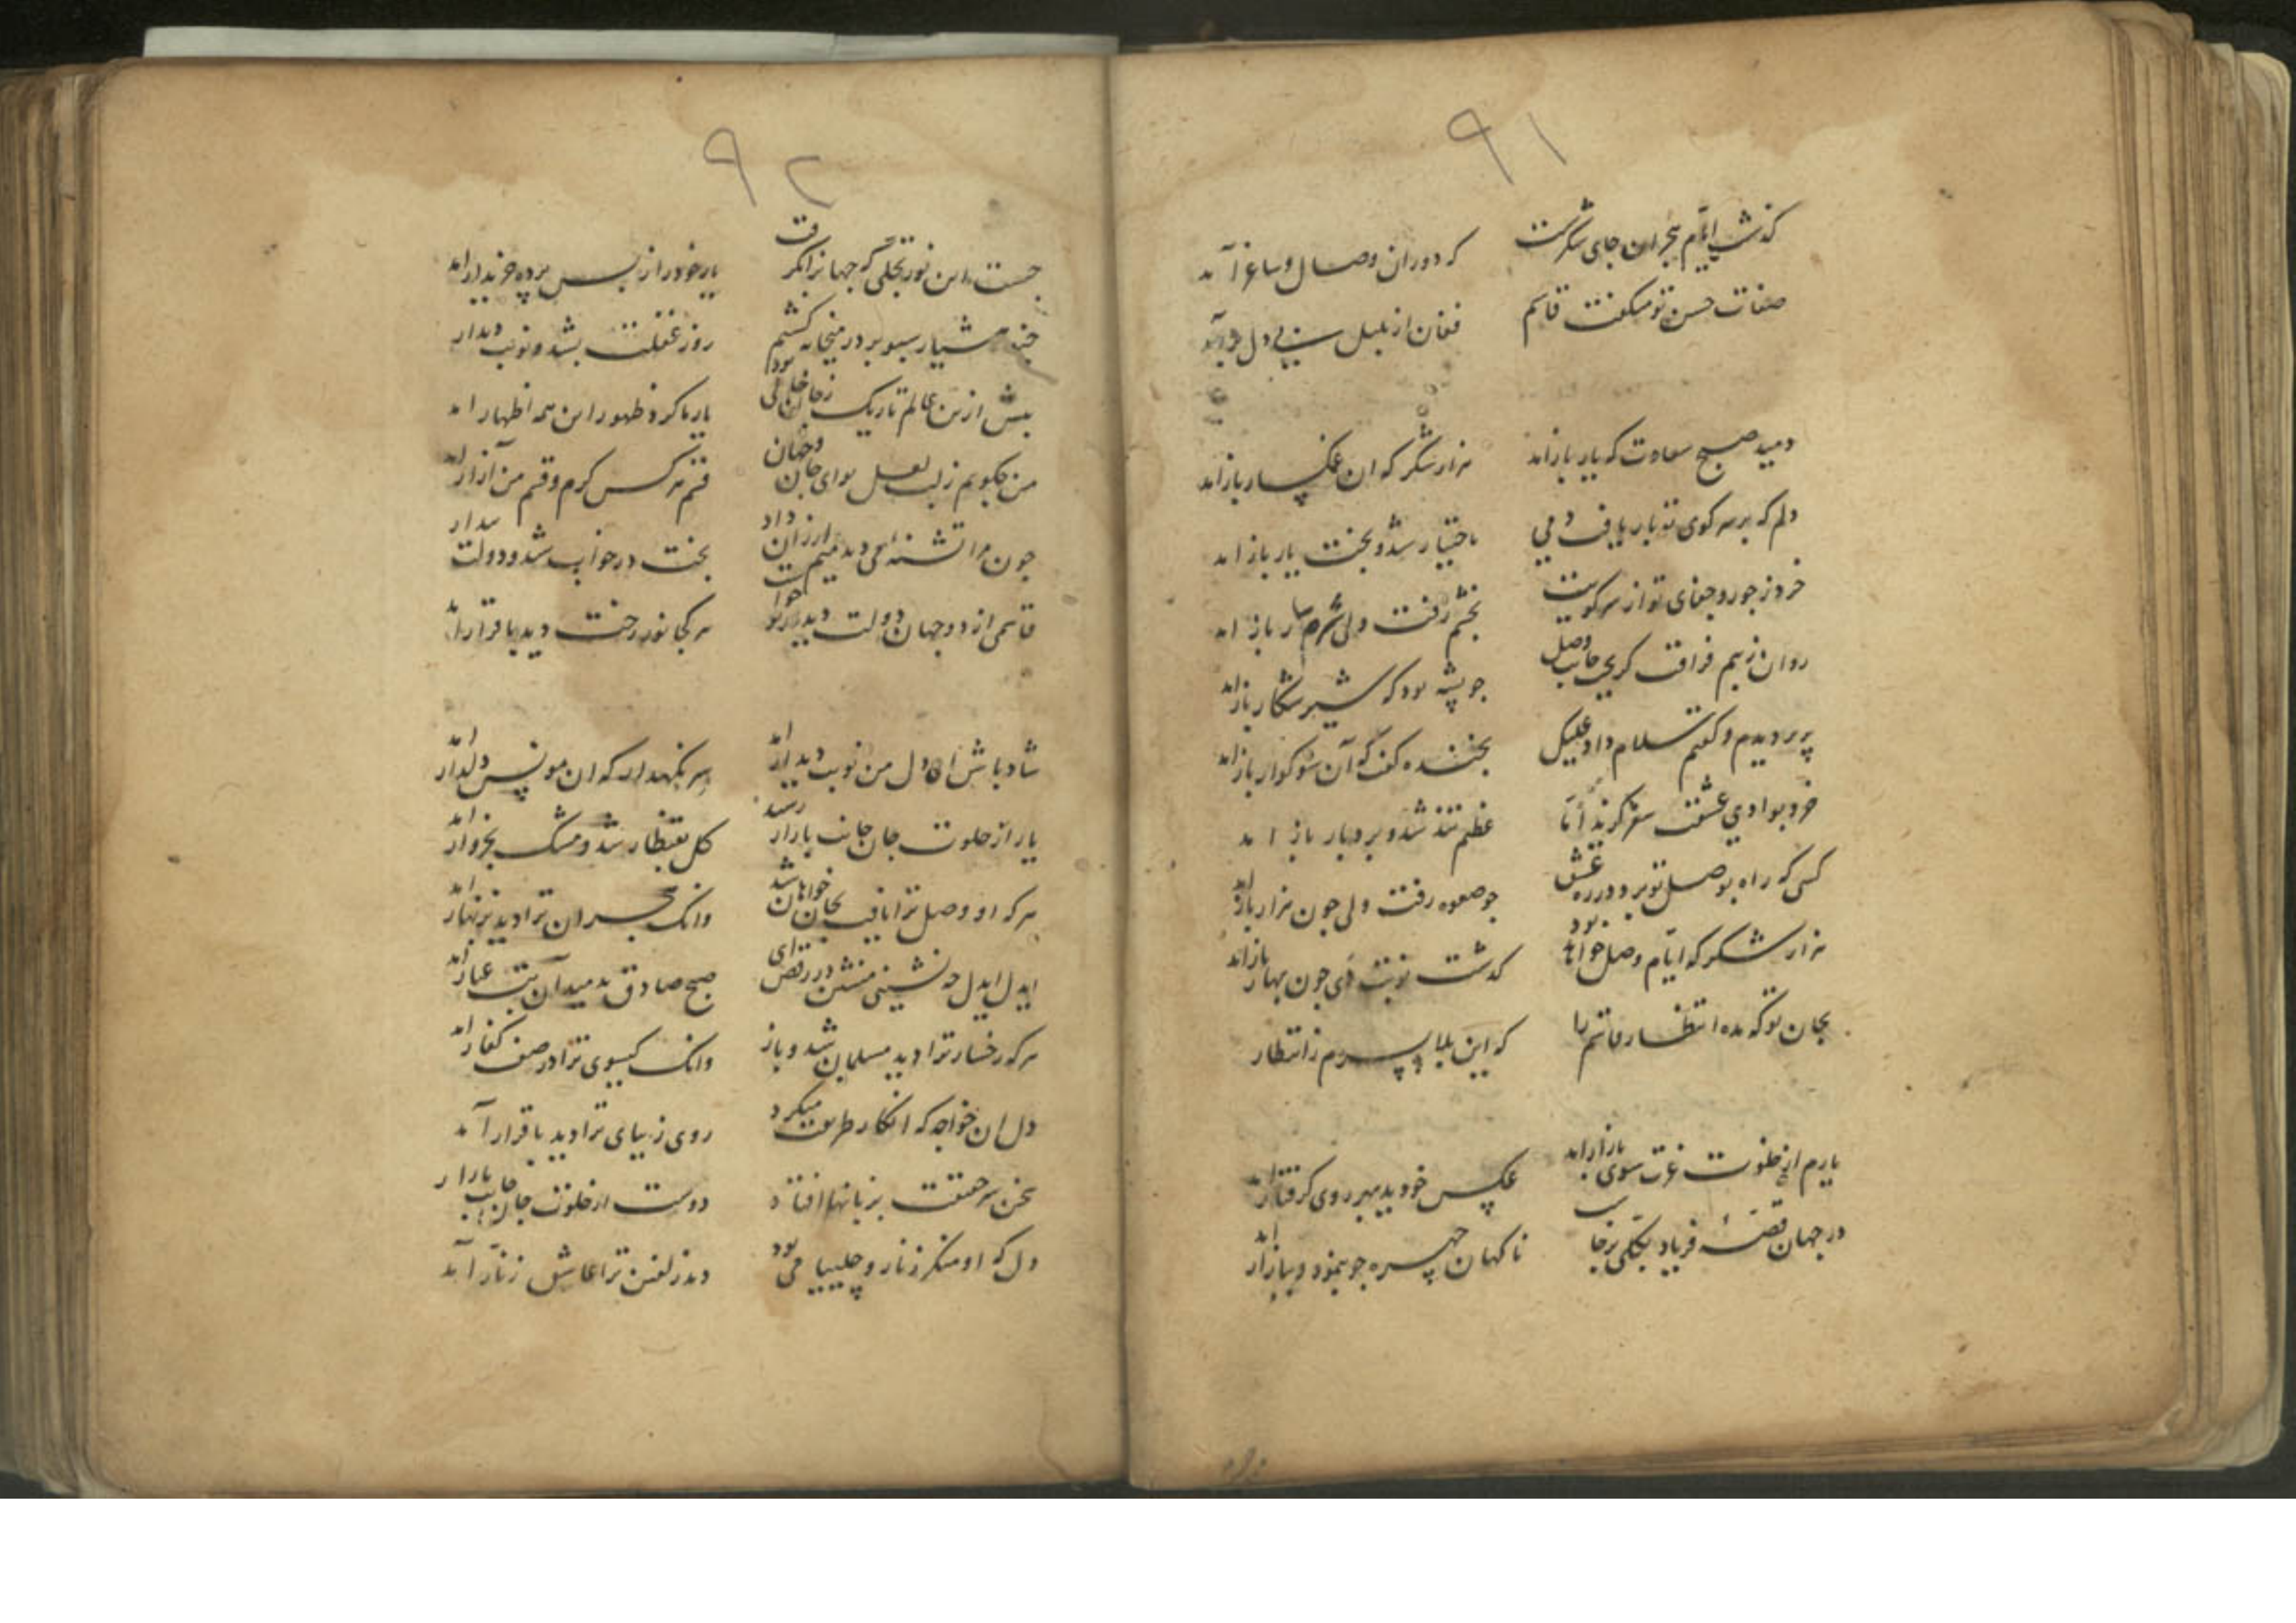 ۹۱
گذشت ایام هجران جای شکرست
که دوران وصال و ساغر آمد
صفات حسن تو میگفت قاسم
فغان از بلبل بی دل برآمد
دمید صبح سعادت که یار بازامد
هزار شکر که ان غمگسار بازامد
دلم که بر سر کوی تو بار یافت دمی
باختیار شد و بخت یار بازامد
خرد ز جور و جفای تو از سر کویت
بخشم رفت ولی شرمسار بازامد
روان ز بیم فراقت گریخت جانب وصل
چو پشه بود که شیر شکار بازامد
پریر دیدم و گفتم سلام داد علیک
بخنده گفت که آن سوگوار بازامد
خرد بوادی عشقت سفر گزید اما
عظیم تند شد و بردبار بازامد
کسی که راه بوصل تو برد در ره عشق
چو صعوه رفت ولی چون هزار بازامد
هزار شکر که ایام وصل خواهد بود
گذشت نوبت دی چون بهار بازامد
بجان تو که مده انتظار قاسم را
که این بلا بسرم ز انتظار
یارم از خلوت عزت سوی بازار امد
عکس خود دید بهر روی گرفتار امد
در جهان قصه فریاد یکی برخاست
ناکهان چهره چو بنمود و ببازار امد
۹۲
چیست این نور تجلی که جهانرا بگرفت
یار خود را از پس پرده خریدار امد
چند هشیار سبو بر در میخانه کشیم
روز غفلت بشد و نوبت دیدار
پیش ازین عالم تاریک ز جان خالی بود
یار ما کرد ظهور این همه اظهار امد
من چگویم ز لب لعل دوای جان و جهان
قسم هر کس کرم و قسم من آزار امد
چون مرا تشنه همی دید میم ارزان داد
بخت در خواب شد و دولت بیدار
قاسمی از دو جهان دولت دیدار تو خواست
هر کجا نور رخت دید باقرار امد
شاد باش ای دل من نوبت دیدار امد
سر نگهدار که ان مونس دلدار امد
یار از خلوت جان جانب بازار رسید
گل بقنطار شد و مشک بخروار امد
هر که او وصل ترا یافت بجان خواهان شد
وانک هجران ترا دید بزنهار امد
ایدل ایدل چه نشینی منشین در رقص ای
صبح صادق بدمید آن بت عیار امد
هر که رخسار ترا دید مسلمان شد و باز
وانک گیسوی ترا در صف کفار امد
دل ان خواجه که انکار طریقت میکرد
روی زیبای ترا دید باقرار آمد
سخن سر حقیقت بزبانها افتاد
دوست از خلوت جان جانب بازار
دل که او منکر زنار و چلیپا می بود
دید زلفین ترا عاشق زنار آمد